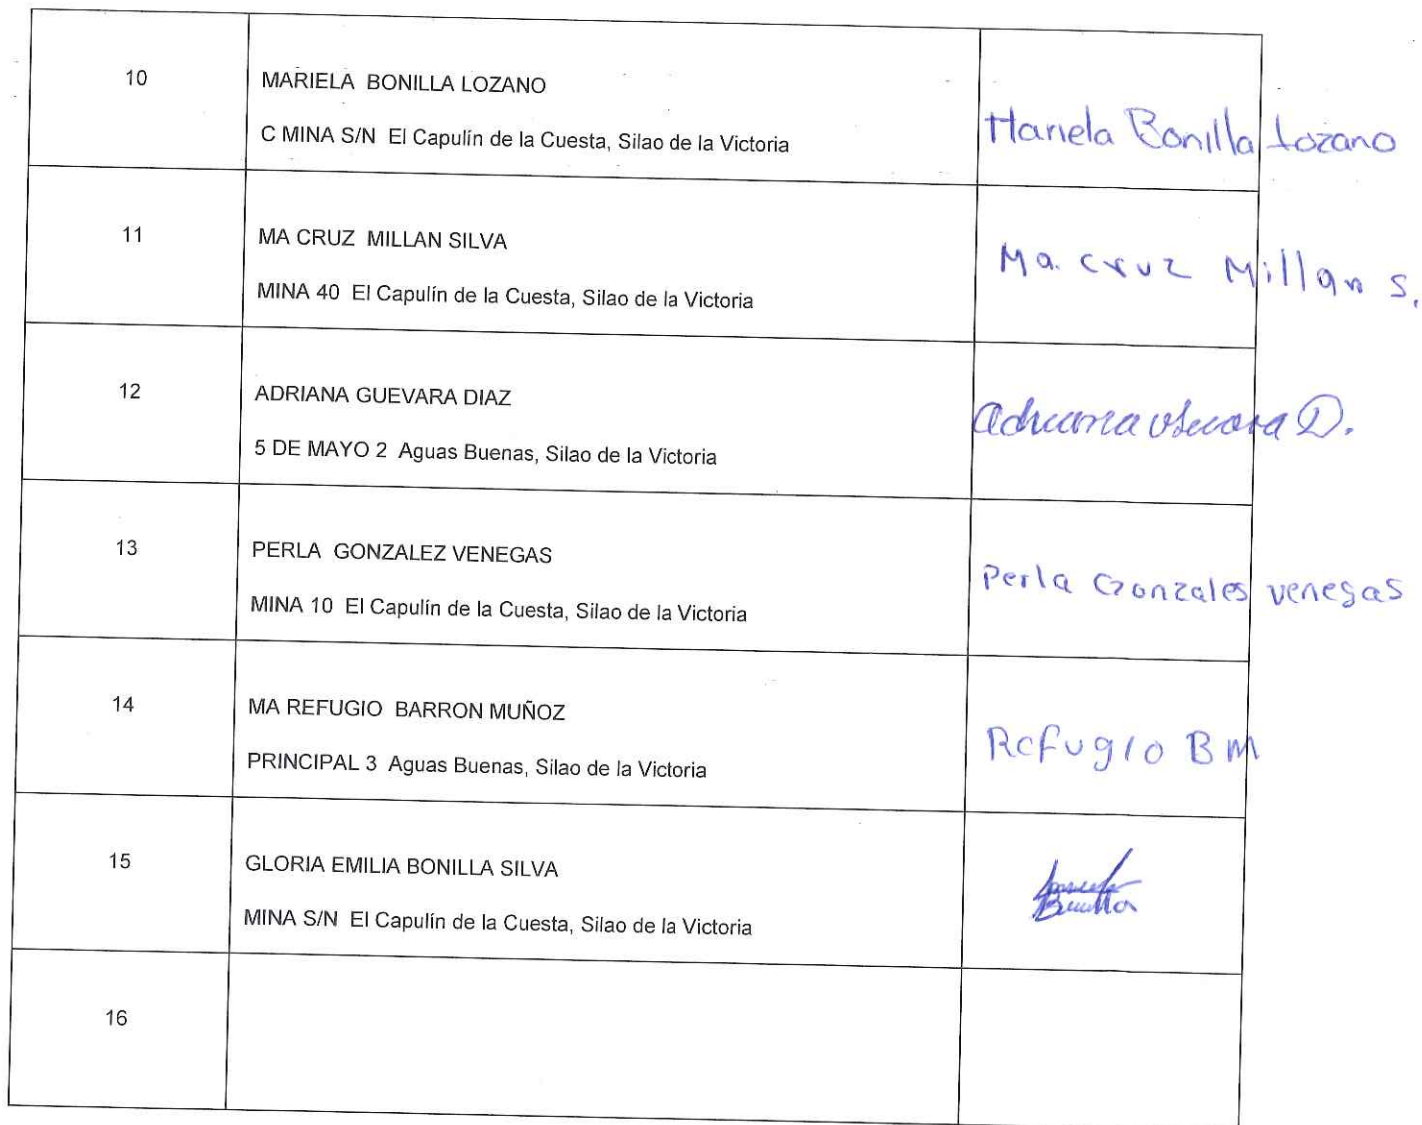 10
MARIELA BONILLA LOZANO
C MINA S/N El Capulín de la Cuesta, Silao de la Victoria
Mariela Bonilla Lozano
11
MA CRUZ MILLAN SILVA
MINA 40 El Capulín de la Cuesta, Silao de la Victoria
Ma. cruz Millan S.
12
ADRIANA GUEVARA DIAZ
5 DE MAYO 2 Aguas Buenas, Silao de la Victoria
Adriana D.
13
PERLA GONZALEZ VENEGAS
MINA 10 El Capulín de la Cuesta, Silao de la Victoria
Perla Gonzales venegas
14
MA REFUGIO BARRON MUÑOZ
PRINCIPAL 3 Aguas Buenas, Silao de la Victoria
Refugio B M
15
GLORIA EMILIA BONILLA SILVA
MINA S/N El Capulín de la Cuesta, Silao de la Victoria
16